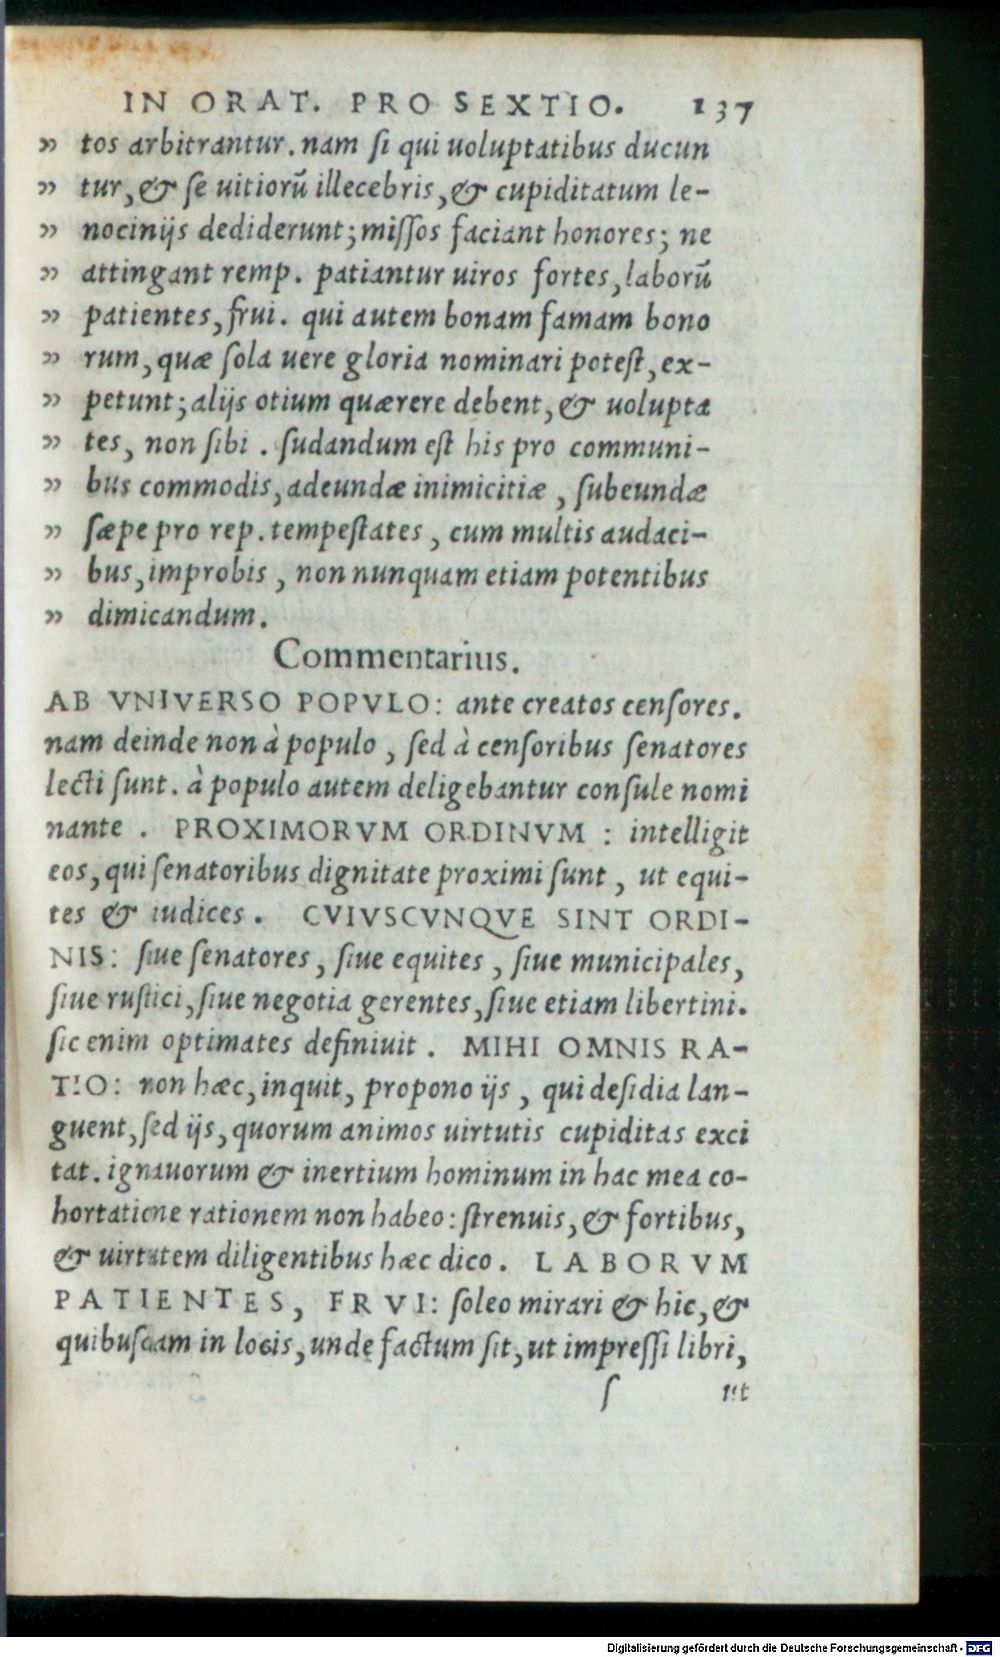 IN ORAT. PRO SEXTIO. 137
” tos arbitrantur. nam ſi qui uoluptatibus ducun
” tur, & ſe uitiorū illecebris, & cupiditatum le-
” nocinijs dediderunt; miſſos faciant honores; ne
” attingant remp. patiantur uiros fortes, laborū
” patientes, frui. qui autem bonam famam bono
” rum, quæ ſola uere gloria nominari poteſt, ex-
” petunt; alijs otium quærere debent, & uolupta
” tes, non ſibi. ſudandum eſt his pro communi-
” bus commodis, adeundæ inimicitiæ, ſubeundæ
” ſæpe pro rep. tempeſtates, cum multis audaci-
” bus, improbis, non nunquam etiam potentibus
” dimicandum.
Commentarius.
AB VNIVERSO POPVLO: ante creatos cenſores.
nam deinde non à populo, ſed à cenſoribus ſenatores
lecti ſunt. à populo autem deligebantur conſule nomi
nante. PROXIMORVM ORDINVM: intelligit
eos, qui ſenatoribus dignitate proximi ſunt, ut equi-
tes & iudices. CVIVSCVNQVE SINT ORDI-
NIS: ſiue ſenatores, ſiue equites, ſiue municipales,
ſiue ruſtici, ſiue negotia gerentes, ſiue etiam libertini.
ſic enim optimates definiuit. MIHI OMNIS RA-
TIO: non hæc, inquit, propono ijs, qui deſidia lan-
guent, ſed ijs, quorum animos uirtutis cupiditas exci
tat. ignauorum & inertium hominum in hac mea co-
hortatione rationem non habeo: ſtrenuis, & fortibus,
& uirtutem diligentibus hæc dico. LABORVM
PATIENTES, FRVI: ſoleo mirari & hic, &
quibuſdam in locis, unde factum ſit, ut impreſſi libri,
ſ ut
Digitalisierung gefördert durch die Deutsche Forschungsgemeinschaft - DFG